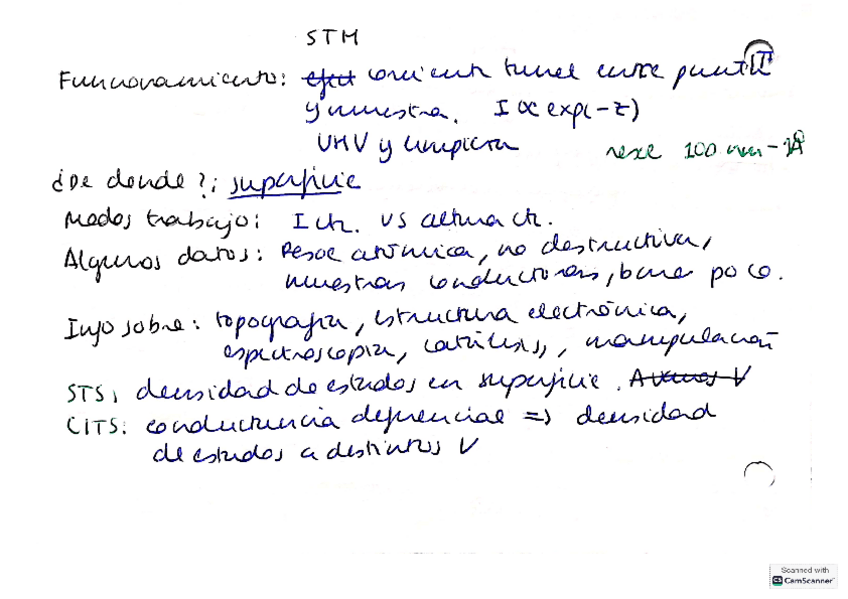 STM
Funcionamiento: efect corriente tunel entre punta
y muestra. I ∝ exp(-z)
UHV y limpieza resol 100 nm - 1Å
¿De donde?: superficie
Modos trabajo: I ct. vs altura ct.
Algunos datos: Resol atómica, no destructiva,
muestras conductoras, barre poco.
Info sobre: topografia, estructura electrónica,
espectroscopia, catálisis, manipulación
STS: densidad de estados en superficie. A unos V
CITS: conductancia diferencial => densidad
de estados a distintos V
Scanned with
CS CamScanner